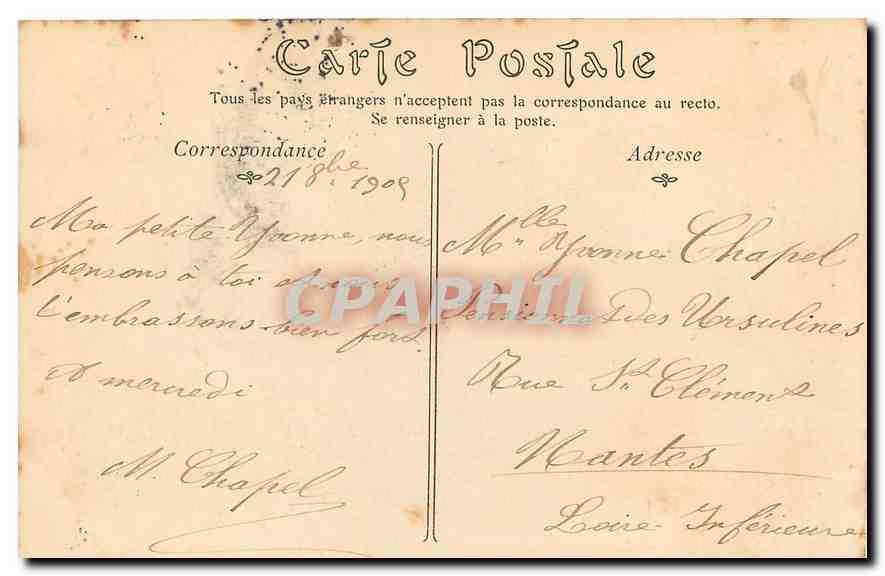 Carte Postale
Tous les pays étrangers n'acceptent pas la correspondance au recto.
Se renseigner à la poste.
Correspondance
21 8bre 1905
Ma petite Yvonne, nous
pensons à toi et nous
t'embrassons bien fort.
A mercredi
M. Chapel
Adresse
Mlle Yvonne Chapel
Pensionnat des Ursulines
Rue St Clément
Nantes
Loire Inférieure
CPAPHIL